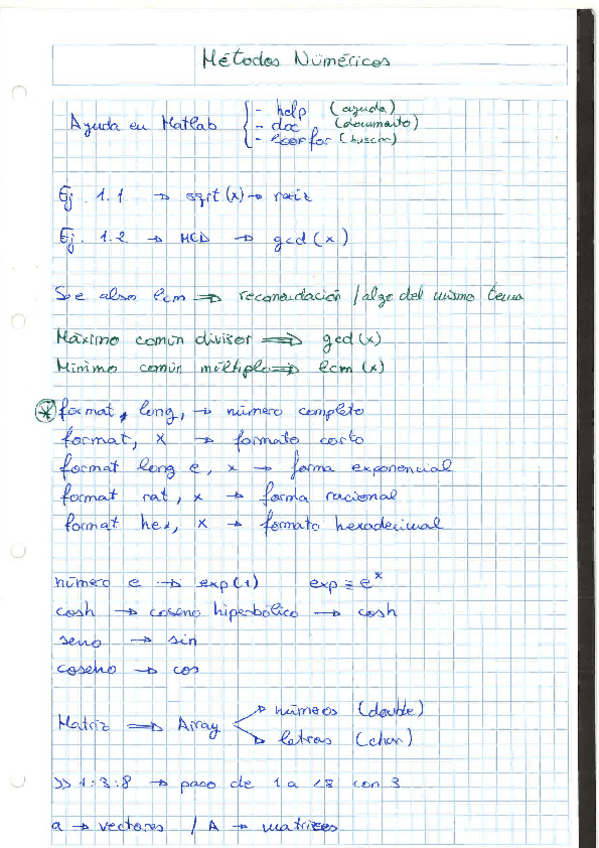 Métodos Númericos
Ayuda en Matlab { - help (ayuda)
- doc (documento)
- lookfor (buscar)
Ej. 1.1 → sqrt(x) → raíz
Ej. 1.2 → MCD → gcd(x)
See also lcm ⇒ recomendación / algo del mismo tema
Máximo común divisor ⇒ gcd(x)
Mínimo común múltiplo ⇒ lcm(x)
* format, long, → número completo
format, x → formato corto
format long e, x → forma exponencial
format rat, x → forma racional
format hex, x → formato hexadecimal
número e → exp(1) exp ≡ e^x
cosh → coseno hiperbólico → cosh
seno → sin
coseno → cos
Matriz ⇒ Array → números (double)
→ letras (char)
>> 1:3:8 → paso de 1 a <8 con 3
a → vectores / A → matrices